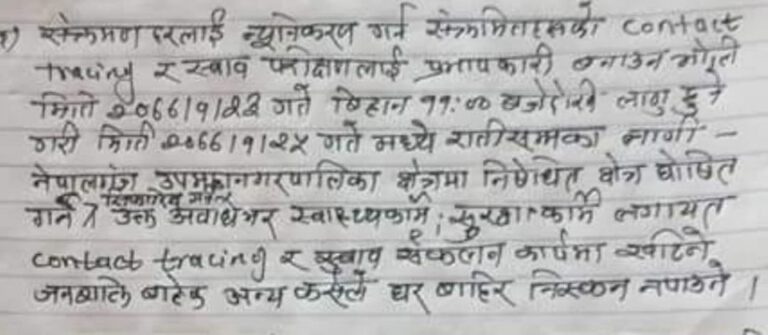 १) संक्रमण दरलाई न्यूनिकरण गर्न संक्रमितहरुको contact
tracing र स्वाव परीक्षणलाई प्रभावकारी बनाउन भोली
मिति २०७७/१/२३ गते बिहान ११:०० बजेदेखि लागु हुने
गरी मिति २०७७/१/२५ गते मध्ये रातीसम्मका लागी -
नेपालगंज उपमहानगरपालिका क्षेत्रमा निषेधित क्षेत्र घोषित
सिफारिस गर्ने
गर्ने र उक्त अवधिभर स्वास्थ्यकर्मि, सुरक्षाकर्मि लगायत
contact tracing र स्वाव संकलन कार्यमा खटिने
जनशक्ति बाहेक अन्य कसैले घर बाहिर निस्कन नपाउने ।